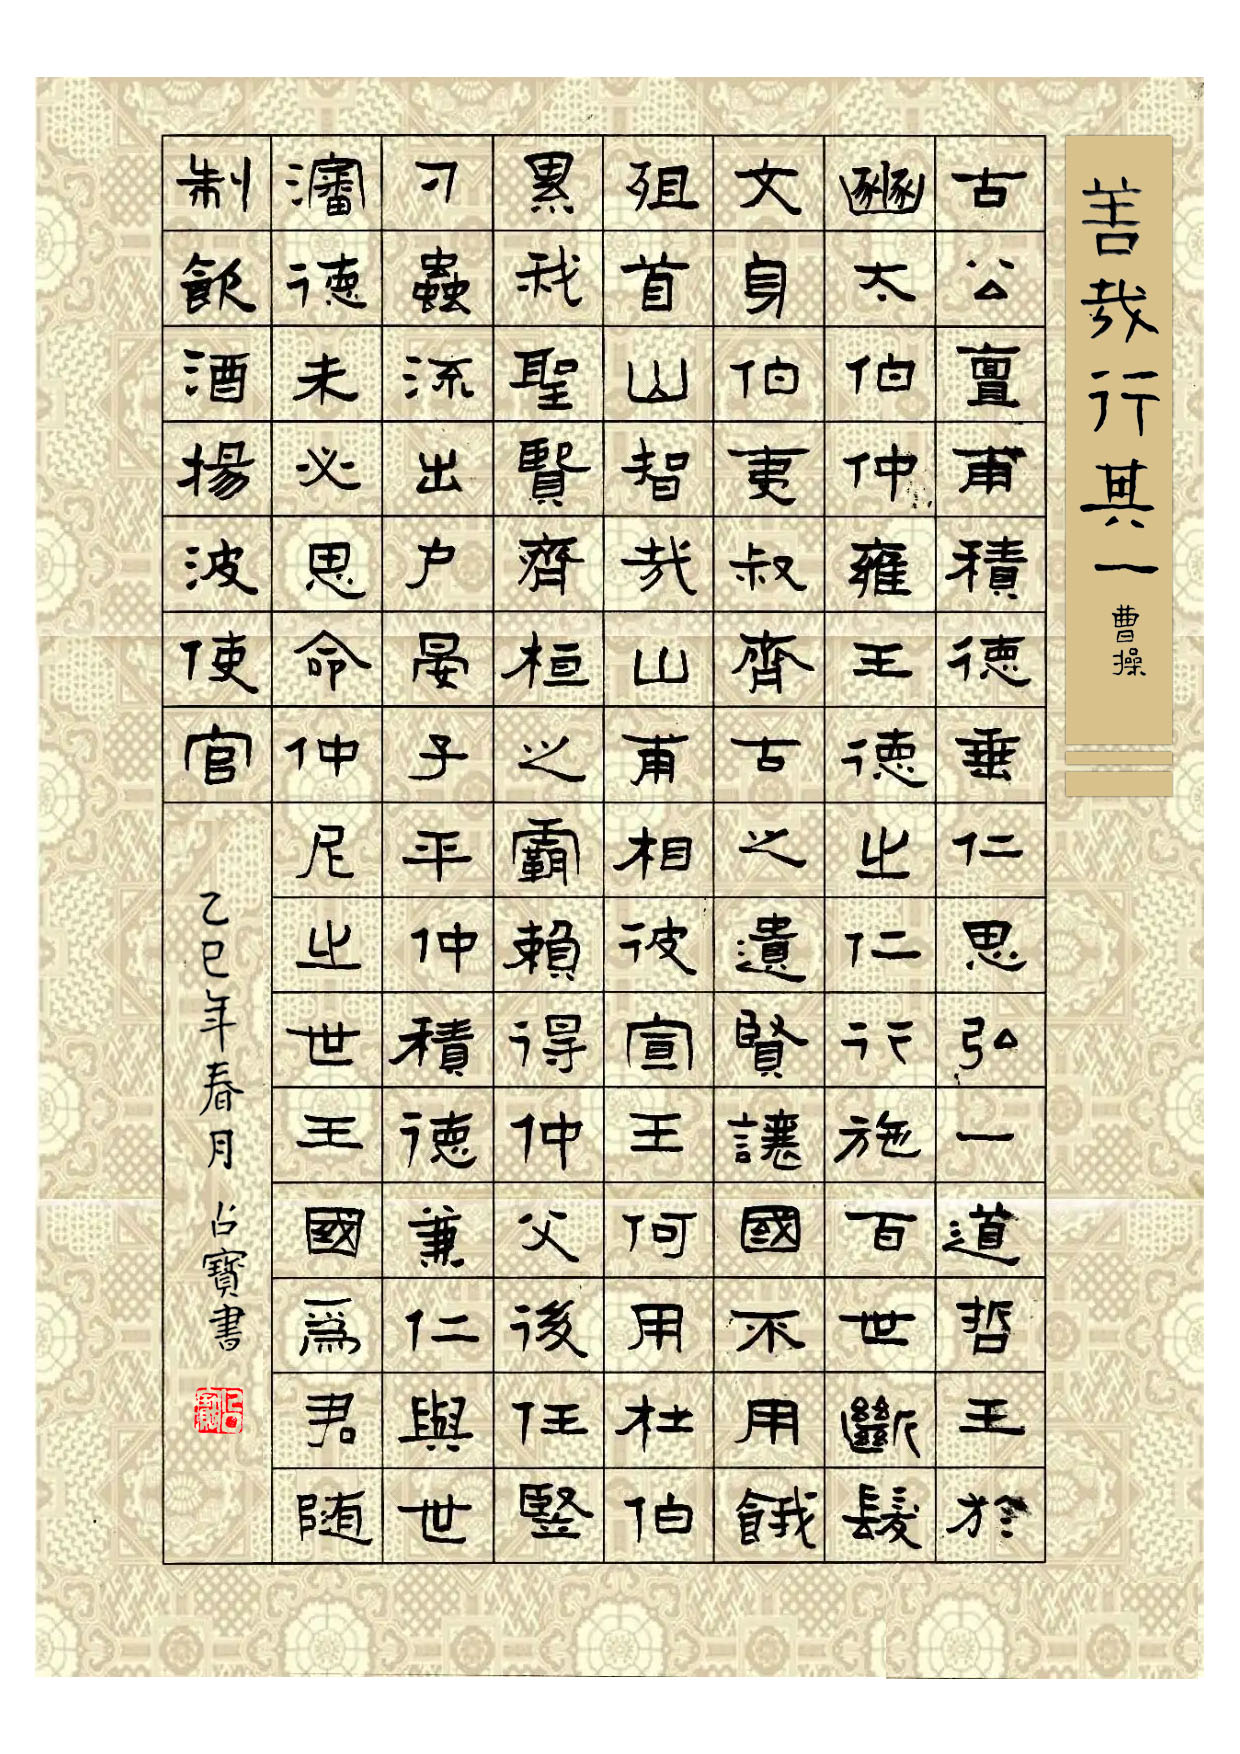 善哉行其一 曹操
古公亶甫積德垂仁思弘一道哲王於
豳太伯仲雍王德之仁行施百世斷髮
文身伯夷叔齊古之遺賢讓國不用餓
殂首山智哉山甫相彼宣王何用杜伯
累我聖賢齊桓之霸賴得仲父後任豎
刁蟲流出户晏子平仲積德兼仁與世
瀋德未必思命仲尼之世王國爲君随
制飲酒揚波使官
乙巳年春月占寶書